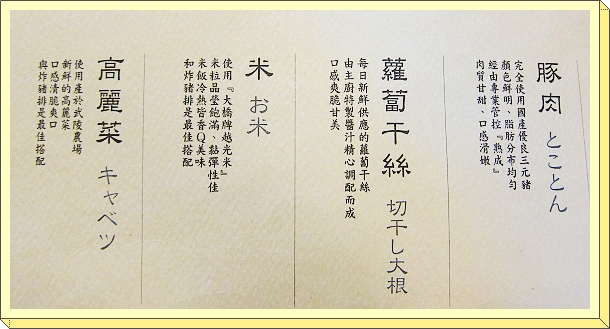 豚肉 とことん
完全使用國產優良三元豬
顏色鮮明、脂肪分布均勻
經由專業管控『熟成』
肉質甘甜、口感滑嫩
蘿蔔干絲 切干し大根
每日新鮮供應的蘿蔔干絲
由主廚特製醬汁精心調配而成
口感爽脆甘美
米 お米
使用『大橋牌越光米』
米粒晶瑩飽滿、黏彈性佳
米飯冷熱皆香Q美味
和炸豬排是最佳搭配
高麗菜 キャベツ
使用產於武陵農場
新鮮的高麗菜
口感清脆爽口
與炸豬排是最佳搭配